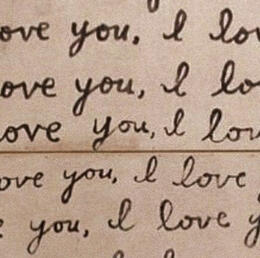 ove you, I lov
ove you, I lo
ove you, I lov
ove you, I love
e you, I love y